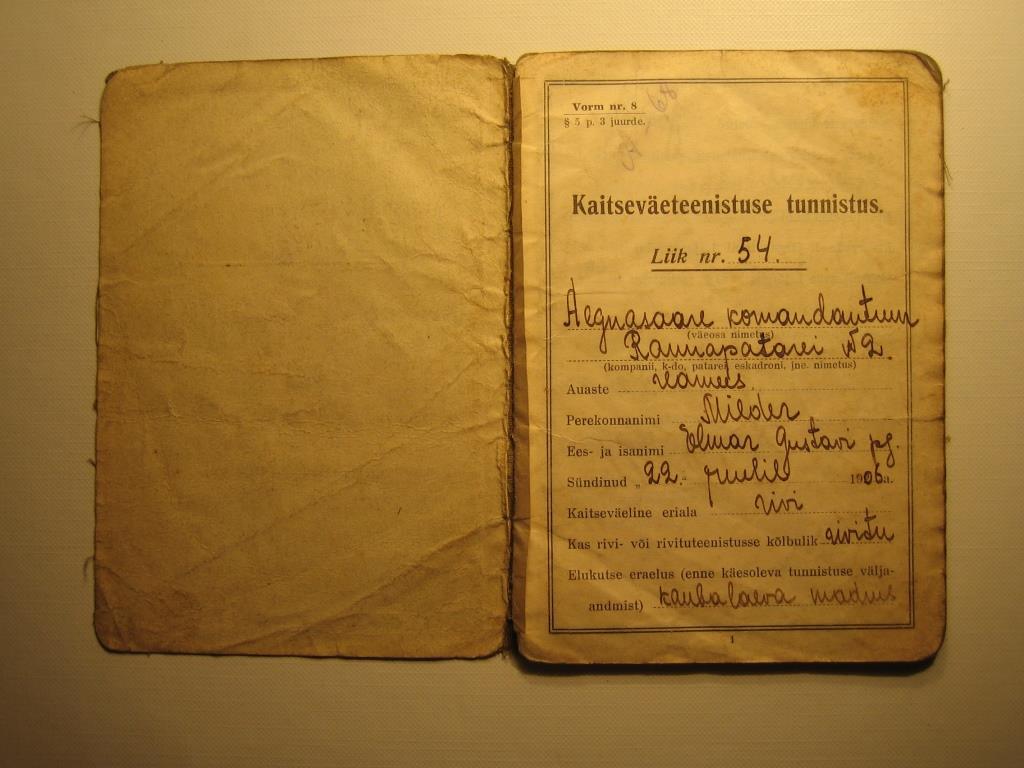 Vorm nr. 8
§ 5 p. 3 juurde.
Kaitseväeteenistuse tunnistus.
Liik nr. 54.
Aegnasaare komandantuur
(väeosa nimetus)
Rannapatarei № 2.
(kompanii, k-do, patarei, eskadroni, jne. nimetus)
Auaste reamees.
Perekonnanimi Milder
Ees- ja isanimi Elmar Gustavi pg.
Sündinud „22.“ juulil 1906a.
Kaitseväeline eriala rivi
Kas rivi- või rivituteenistusse kõlbulik rivitu
Elukutse eraelus (enne käesoleva tunnistuse välja-
andmist) kaubalaeva madrus
1